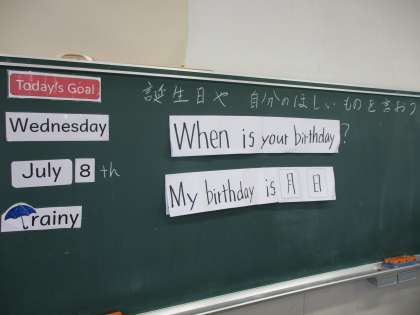 Today's Goal
誕生日や 自分のほしいものを言おう
Wednesday
When is your birthday?
July 8 th
My birthday is 月 日
rainy